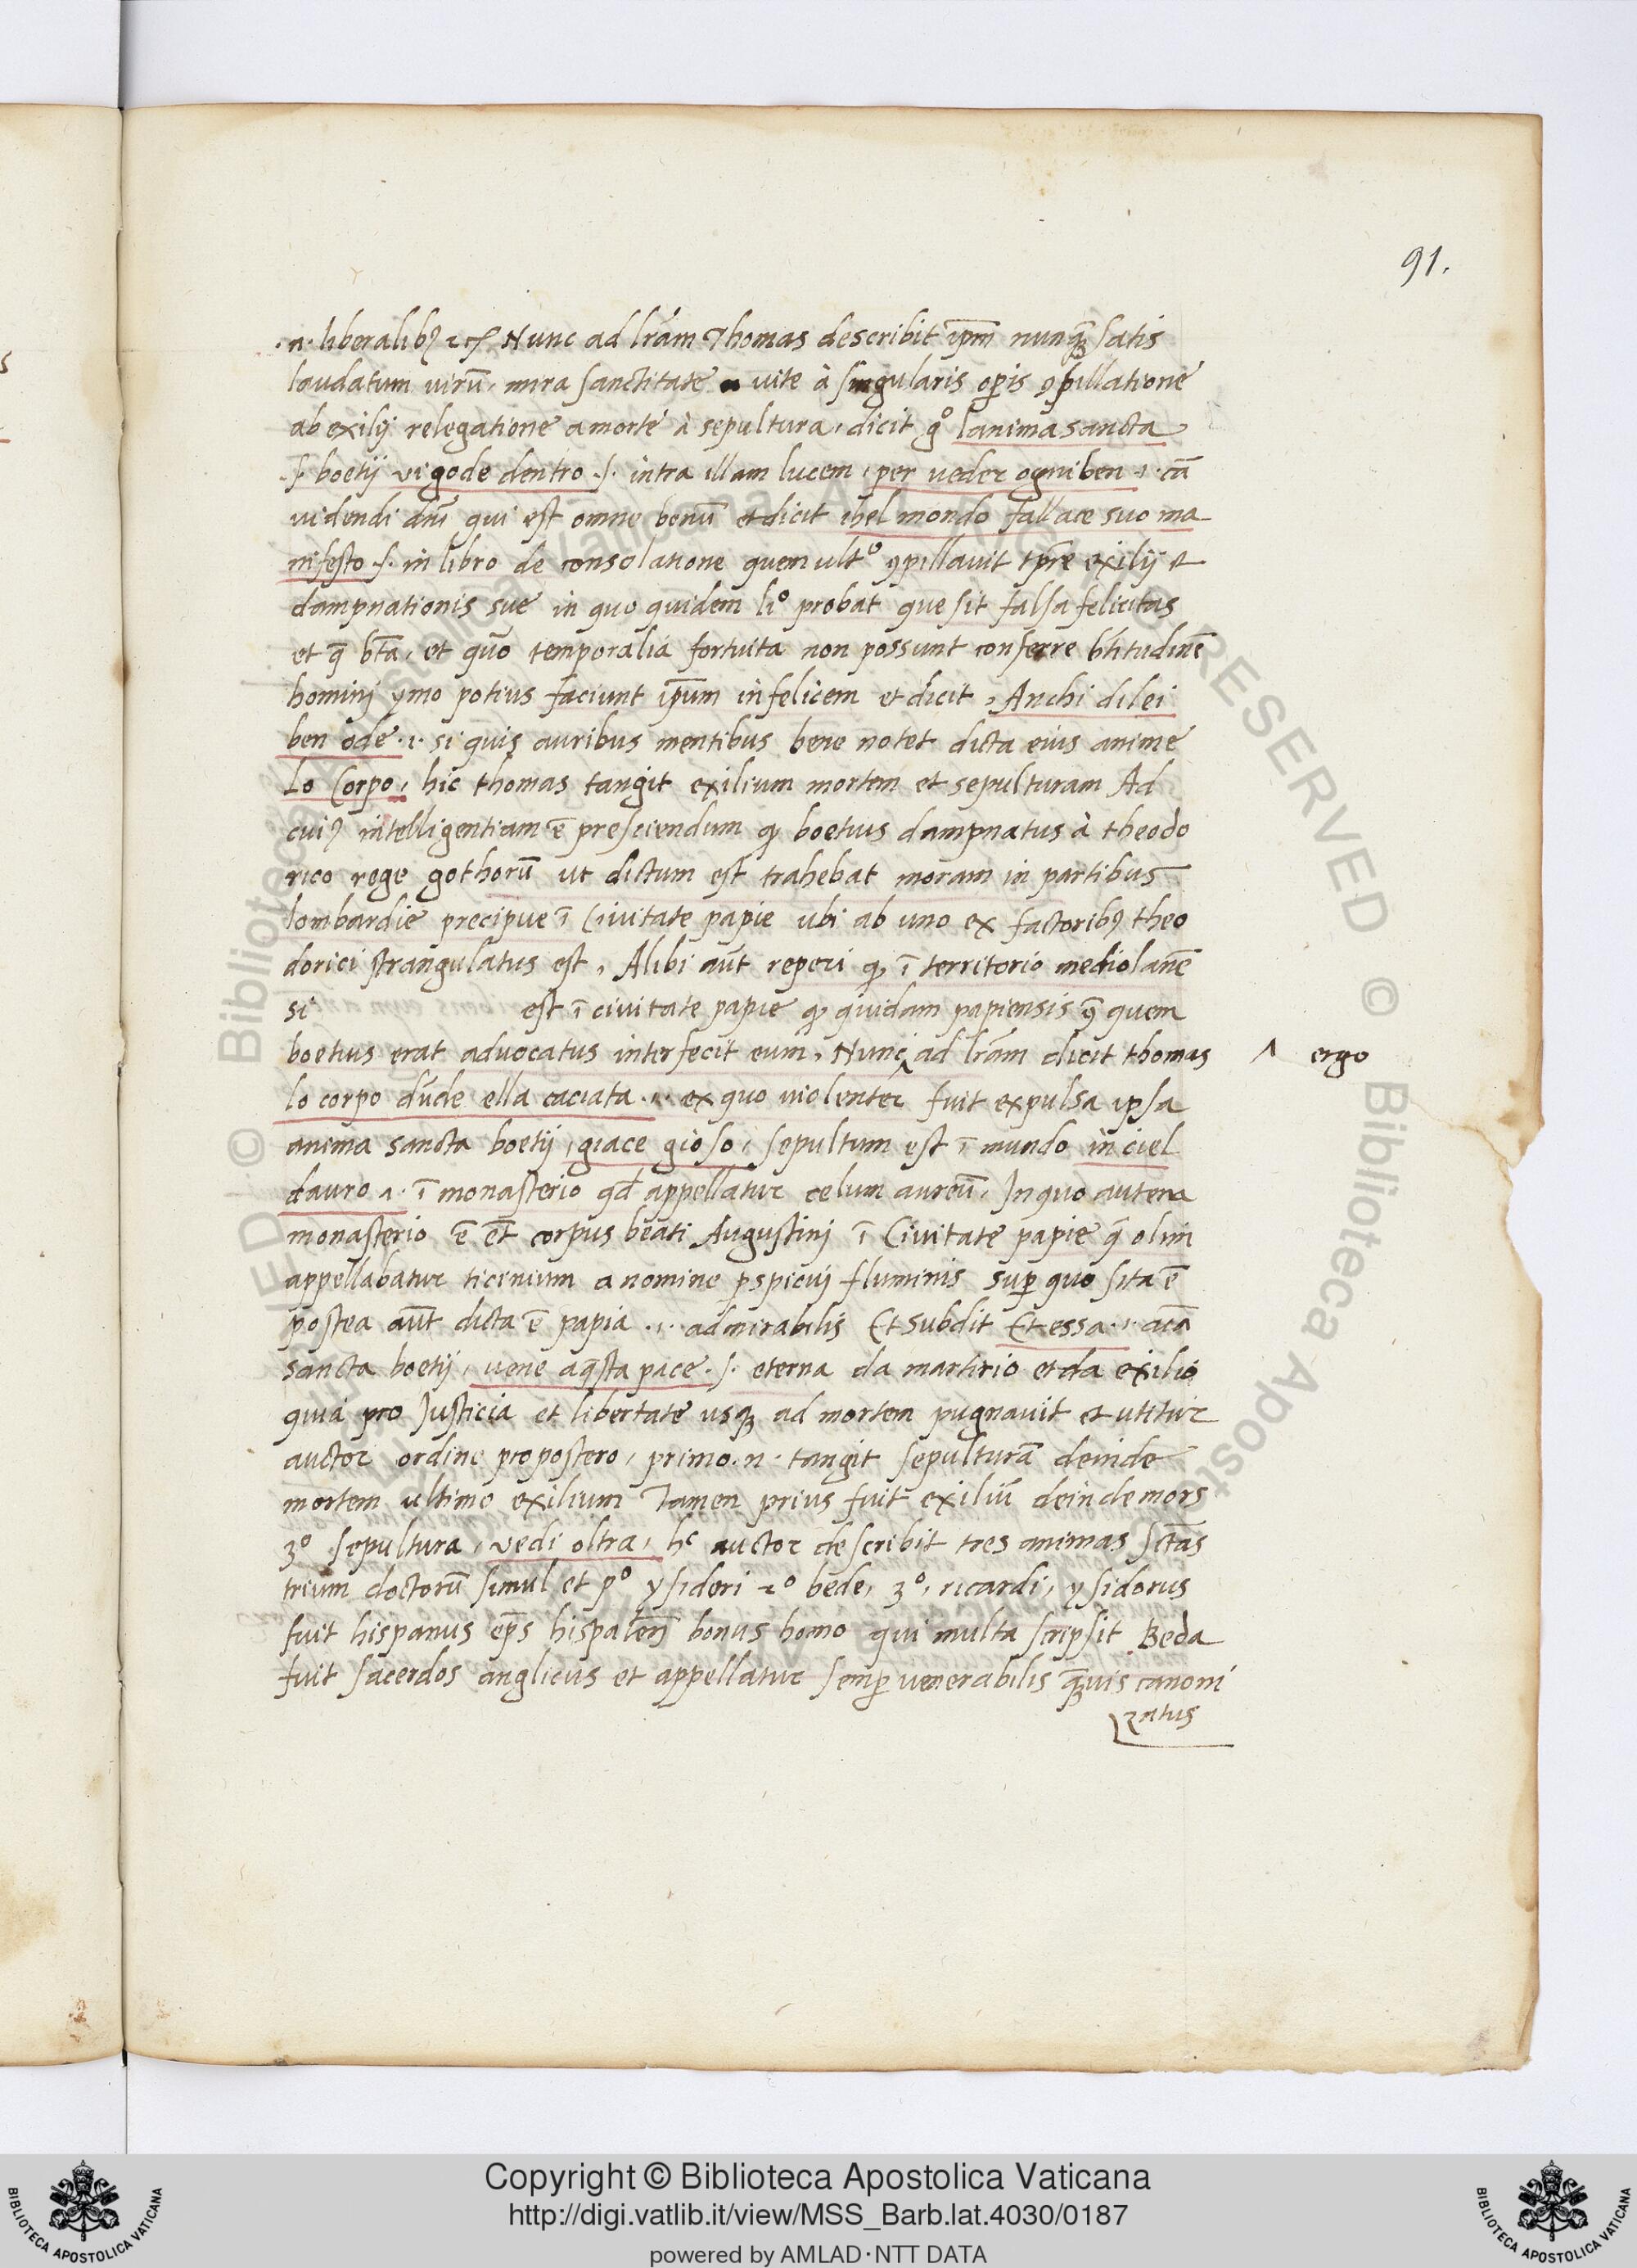 91.
.n. liberalibꝰ ⁊cꝭ Nunc ad lr̄am Thomas describit ip̄m nunqꝫ satis
laudatum virū, mira sanctitate vite à singularis op̄is ꝯpillatione
ab exilij relegatione a morte à sepultura, dicit gͦ lanima sancta
.s. boetij vi gode dentro .s. intra illam lucem, per veder ogni ben .i. cā
videndi dn̄i qui est omne bonū et dicit chel mondo fallace suo ma
nifesto .s. in libro de consolatione quem ultͦ ꝯpillavit tp̄re exilij et
dampnationis sue in quo quidem liͦ probat que sit falsa felicitas
et q̄ bt̄a, et quō temporalia fortuita non possunt conferre bt̄itudinē
hominj ymo potius faciunt ip̄um infelicem et dicit, A Anchi di lei
ben ode .i. si quis auribus mentibus bene notet dicta eius anime
Lo Corpo, hic thomas tangit exilium mortem et sepulturam Ad
cuiꝰ intelligentiam ē presciendum ꝙ boetius dampnatus à theodo
rico rege gothorū ut dictum est trahebat moram in partibus
lombardie precipue ī Civitate papie ubi ab uno ex factoribꝰ theo
dorici strangulatus est, Alibi aūt reperi ꝙ ī territorio mediolanē
si est ī civitate papie ꝙ quidam papiensis ꝯ̄ quem
boetius erat advocatus interfecit eum, Nunc ‸ ad lr̄am dicit thomas
‸ ergo
lo corpo dūde ella caciata .i. ex quo violenter fuit expulsa ipsa
anima sancta boetij, giace gioso, sepultum est ī mundo in ciel
dauro .i. ī monasterio qd̄ appellatur celum aureū, In quo autem
monasterio ē et̄ corpus beati Augustinj ī Civitate papie q̄ olim
appellabatur ticinium a nomine ꝑspicuj fluminis suꝑ quo sita ē
postea aūt dicta ē papia .i. admirabilis Et subdit Et essa .i. aīa
sancta boetij, vene aq̄sta pace .s. eterna da martirio et da exilio
quia pro Justicia et libertate usqꝫ ad mortem pugnavit et utitur
auctor ordine propostero, primo .n. tangit sepulturā deinde
mortem ultimo exilium Tamen prius fuit exiliū deinde mors
3ͦ sepultura, vedi oltra, hͨ auctor describit tres animas sct̄as
trium doctorū simul et pͦ ysidori 2ͦ bede, 3ͦ, ricardi, ysidorus
fuit hispanus ep̄s hispalen̄ bonus homo qui multa scripsit Beda
fuit sacerdos anglicus et appellatur semꝑ venerabilis qꝫvis canoni
zatus
Copyright © Biblioteca Apostolica Vaticana
http://digi.vatlib.it/view/MSS_Barb.lat.4030/0187
powered by AMLAD·NTT DATA
BIBLIOTECA APOSTOLICA VATICANA
BIBLIOTECA APOSTOLICA VATICANA